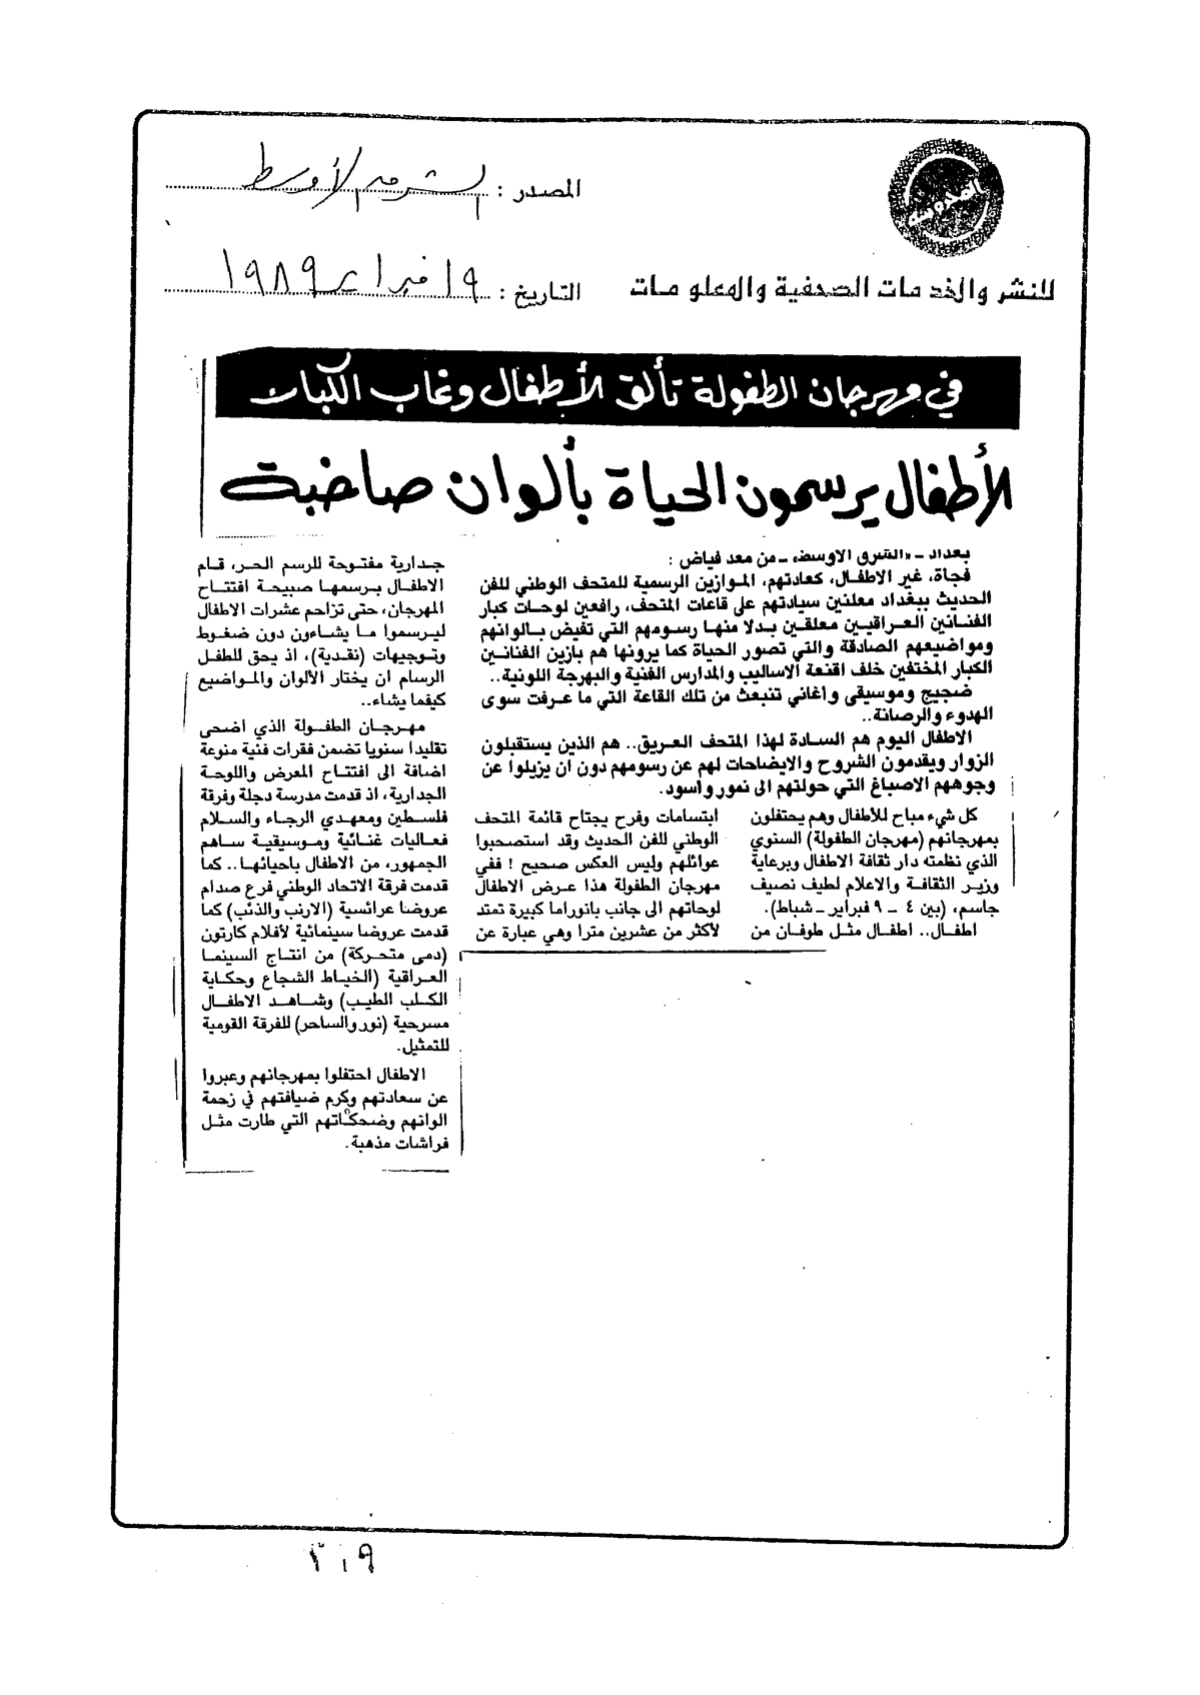 المصدر : الشرق الأوسط
للنشر والخدمات الصحفية والمعلومات
التاريخ : ١٩ فبراير ١٩٨٩
في مهرجان الطفولة تألق الأطفال وغاب الكبار
الأطفال يرسمون الحياة بألوان صاخبة
بغداد ــ «الشرق الاوسط» ــ من معد فياض :
فجأة، غير الاطفال، كعادتهم، الموازين الرسمية للمتحف الوطني للفن
الحديث ببغداد معلنين سيادتهم على قاعات المتحف، رافعين لوحات كبار
الفنانين العراقيين معلقين بدلا منها رسومهم التي تفيض بالوانهم
ومواضيعهم الصادقة والتي تصور الحياة كما يرونها هم بازين الفنانين
الكبار المختفين خلف اقنعة الاساليب والمدارس الفنية والبهرجة اللونية..
ضجيج وموسيقى واغاني تنبعث من تلك القاعة التي ما عرفت سوى
الهدوء والرصانة..
الاطفال اليوم هم السادة لهذا المتحف العريق.. هم الذين يستقبلون
الزوار ويقدمون الشروح والايضاحات لهم عن رسومهم دون ان يزيلوا عن
وجوههم الاصباغ التي حولتهم الى نمور وأسود.
كل شيء مباح للأطفال وهم يحتفلون
بمهرجانهم (مهرجان الطفولة) السنوي
الذي نظمته دار ثقافة الاطفال وبرعاية
وزير الثقافة والاعلام لطيف نصيف
جاسم، (بين ٤ ــ ٩ فبراير ــ شباط).
اطفال.. اطفال مثل طوفان من
ابتسامات وفرح يجتاح قائمة المتحف
الوطني للفن الحديث وقد استصحبوا
عوائلهم وليس العكس صحيح ! ففي
مهرجان الطفولة هذا عرض الاطفال
لوحاتهم الى جانب بانوراما كبيرة تمتد
لأكثر من عشرين مترا وهي عبارة عن
جدارية مفتوحة للرسم الحر، قام
الاطفال برسمها صبيحة افتتاح
المهرجان، حتى تزاحم عشرات الاطفال
ليرسموا ما يشاءون دون ضغوط
وتوجيهات (نقدية)، اذ يحق للطفل
الرسام ان يختار الألوان والمواضيع
كيفما يشاء..
مهرجان الطفولة الذي اضحى
تقليدا سنويا تضمن فقرات فنية منوعة
اضافة الى افتتاح المعرض واللوحة
الجدارية، اذ قدمت مدرسة دجلة وفرقة
فلسطين ومعهدي الرجاء والسلام
فعاليات غنائية وموسيقية ساهم
الجمهور، من الاطفال باحيائها.. كما
قدمت فرقة الاتحاد الوطني فرع صدام
عروضا عرائسية (الارنب والذئب) كما
قدمت عروضا سينمائية لأفلام كارتون
(دمى متحركة) من انتاج السينما
العراقية (الخياط الشجاع وحكاية
الكلب الطيب) وشاهد الاطفال
مسرحية (نور والساحر) للفرقة القومية
للتمثيل.
الاطفال احتفلوا بمهرجانهم وعبروا
عن سعادتهم وكرم ضيافتهم في زحمة
الوانهم وضحكاتهم التي طارت مثل
فراشات مذهبة.